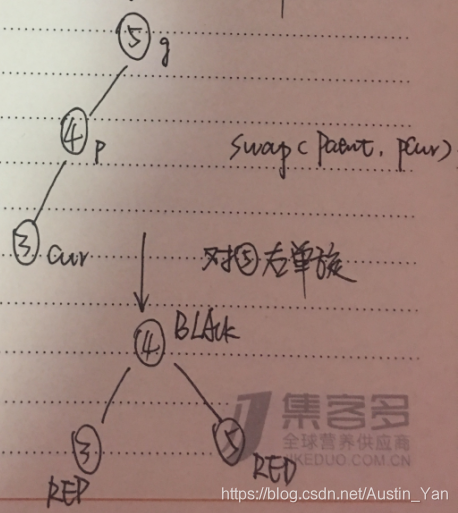 ⑤ g
④ p
swap(Parent, pCur)
③ cur
对⑤右单旋
④ BLAck
③ ⑤
RED RED
集客多
全球营养供应商
JIKEDUO.COM.CN
https://blog.csdn.net/Austin_Yan